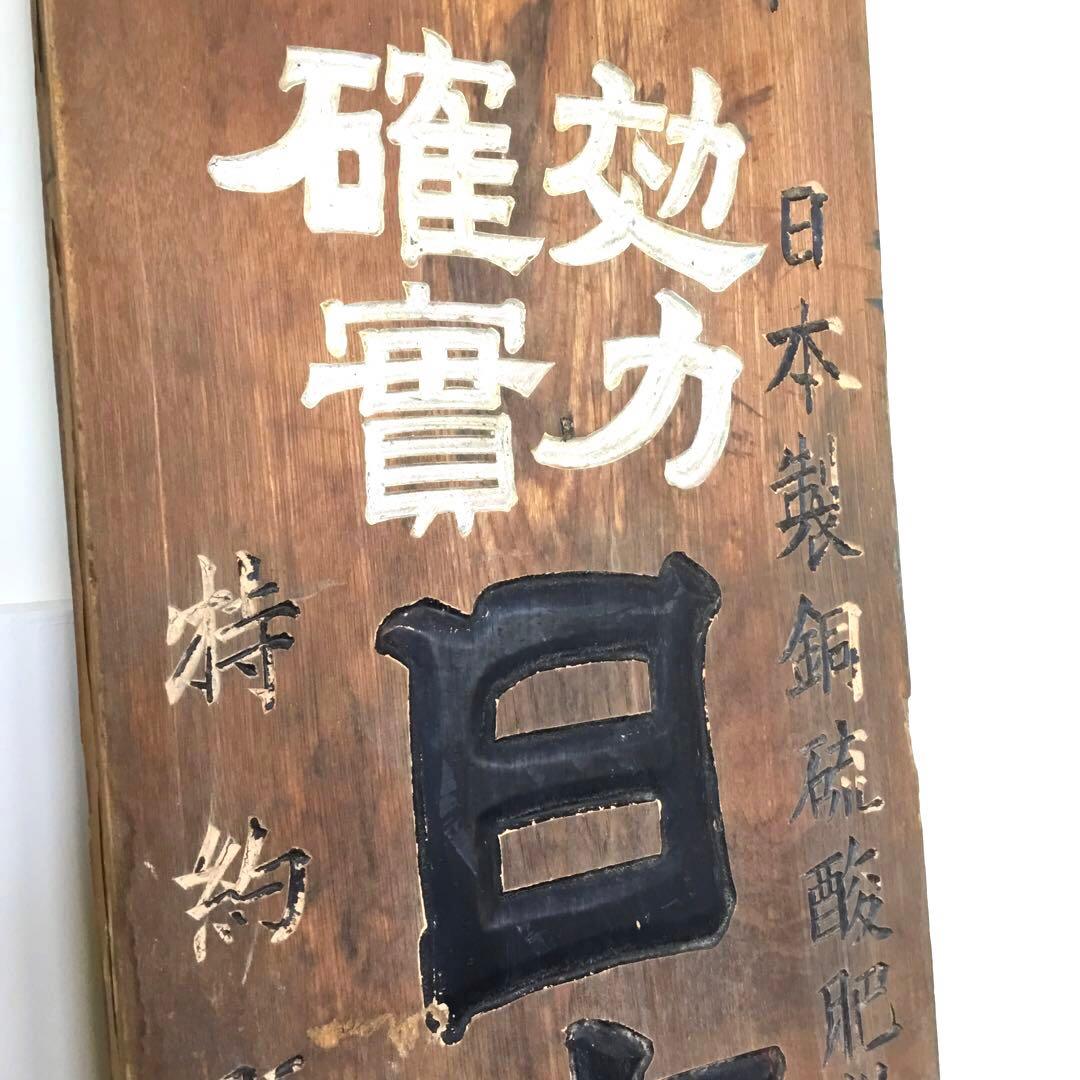 日本製銅硫酸肥
効力
確實
日
特約